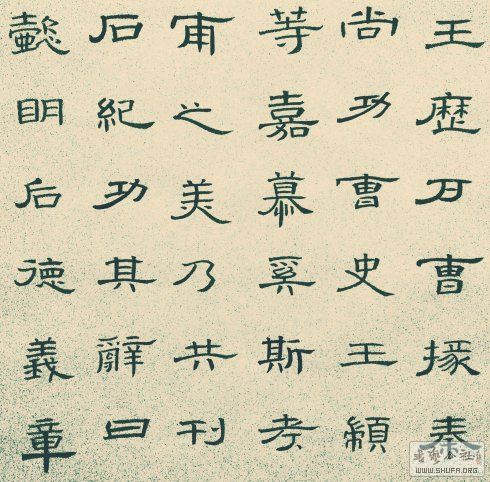 王歷戶曹掾秦
尚功曹史王顓
等嘉慕奚斯考
甫之美乃共刊
石紀功其辭曰
懿明后德義章
WWW.SHUFA.ORG